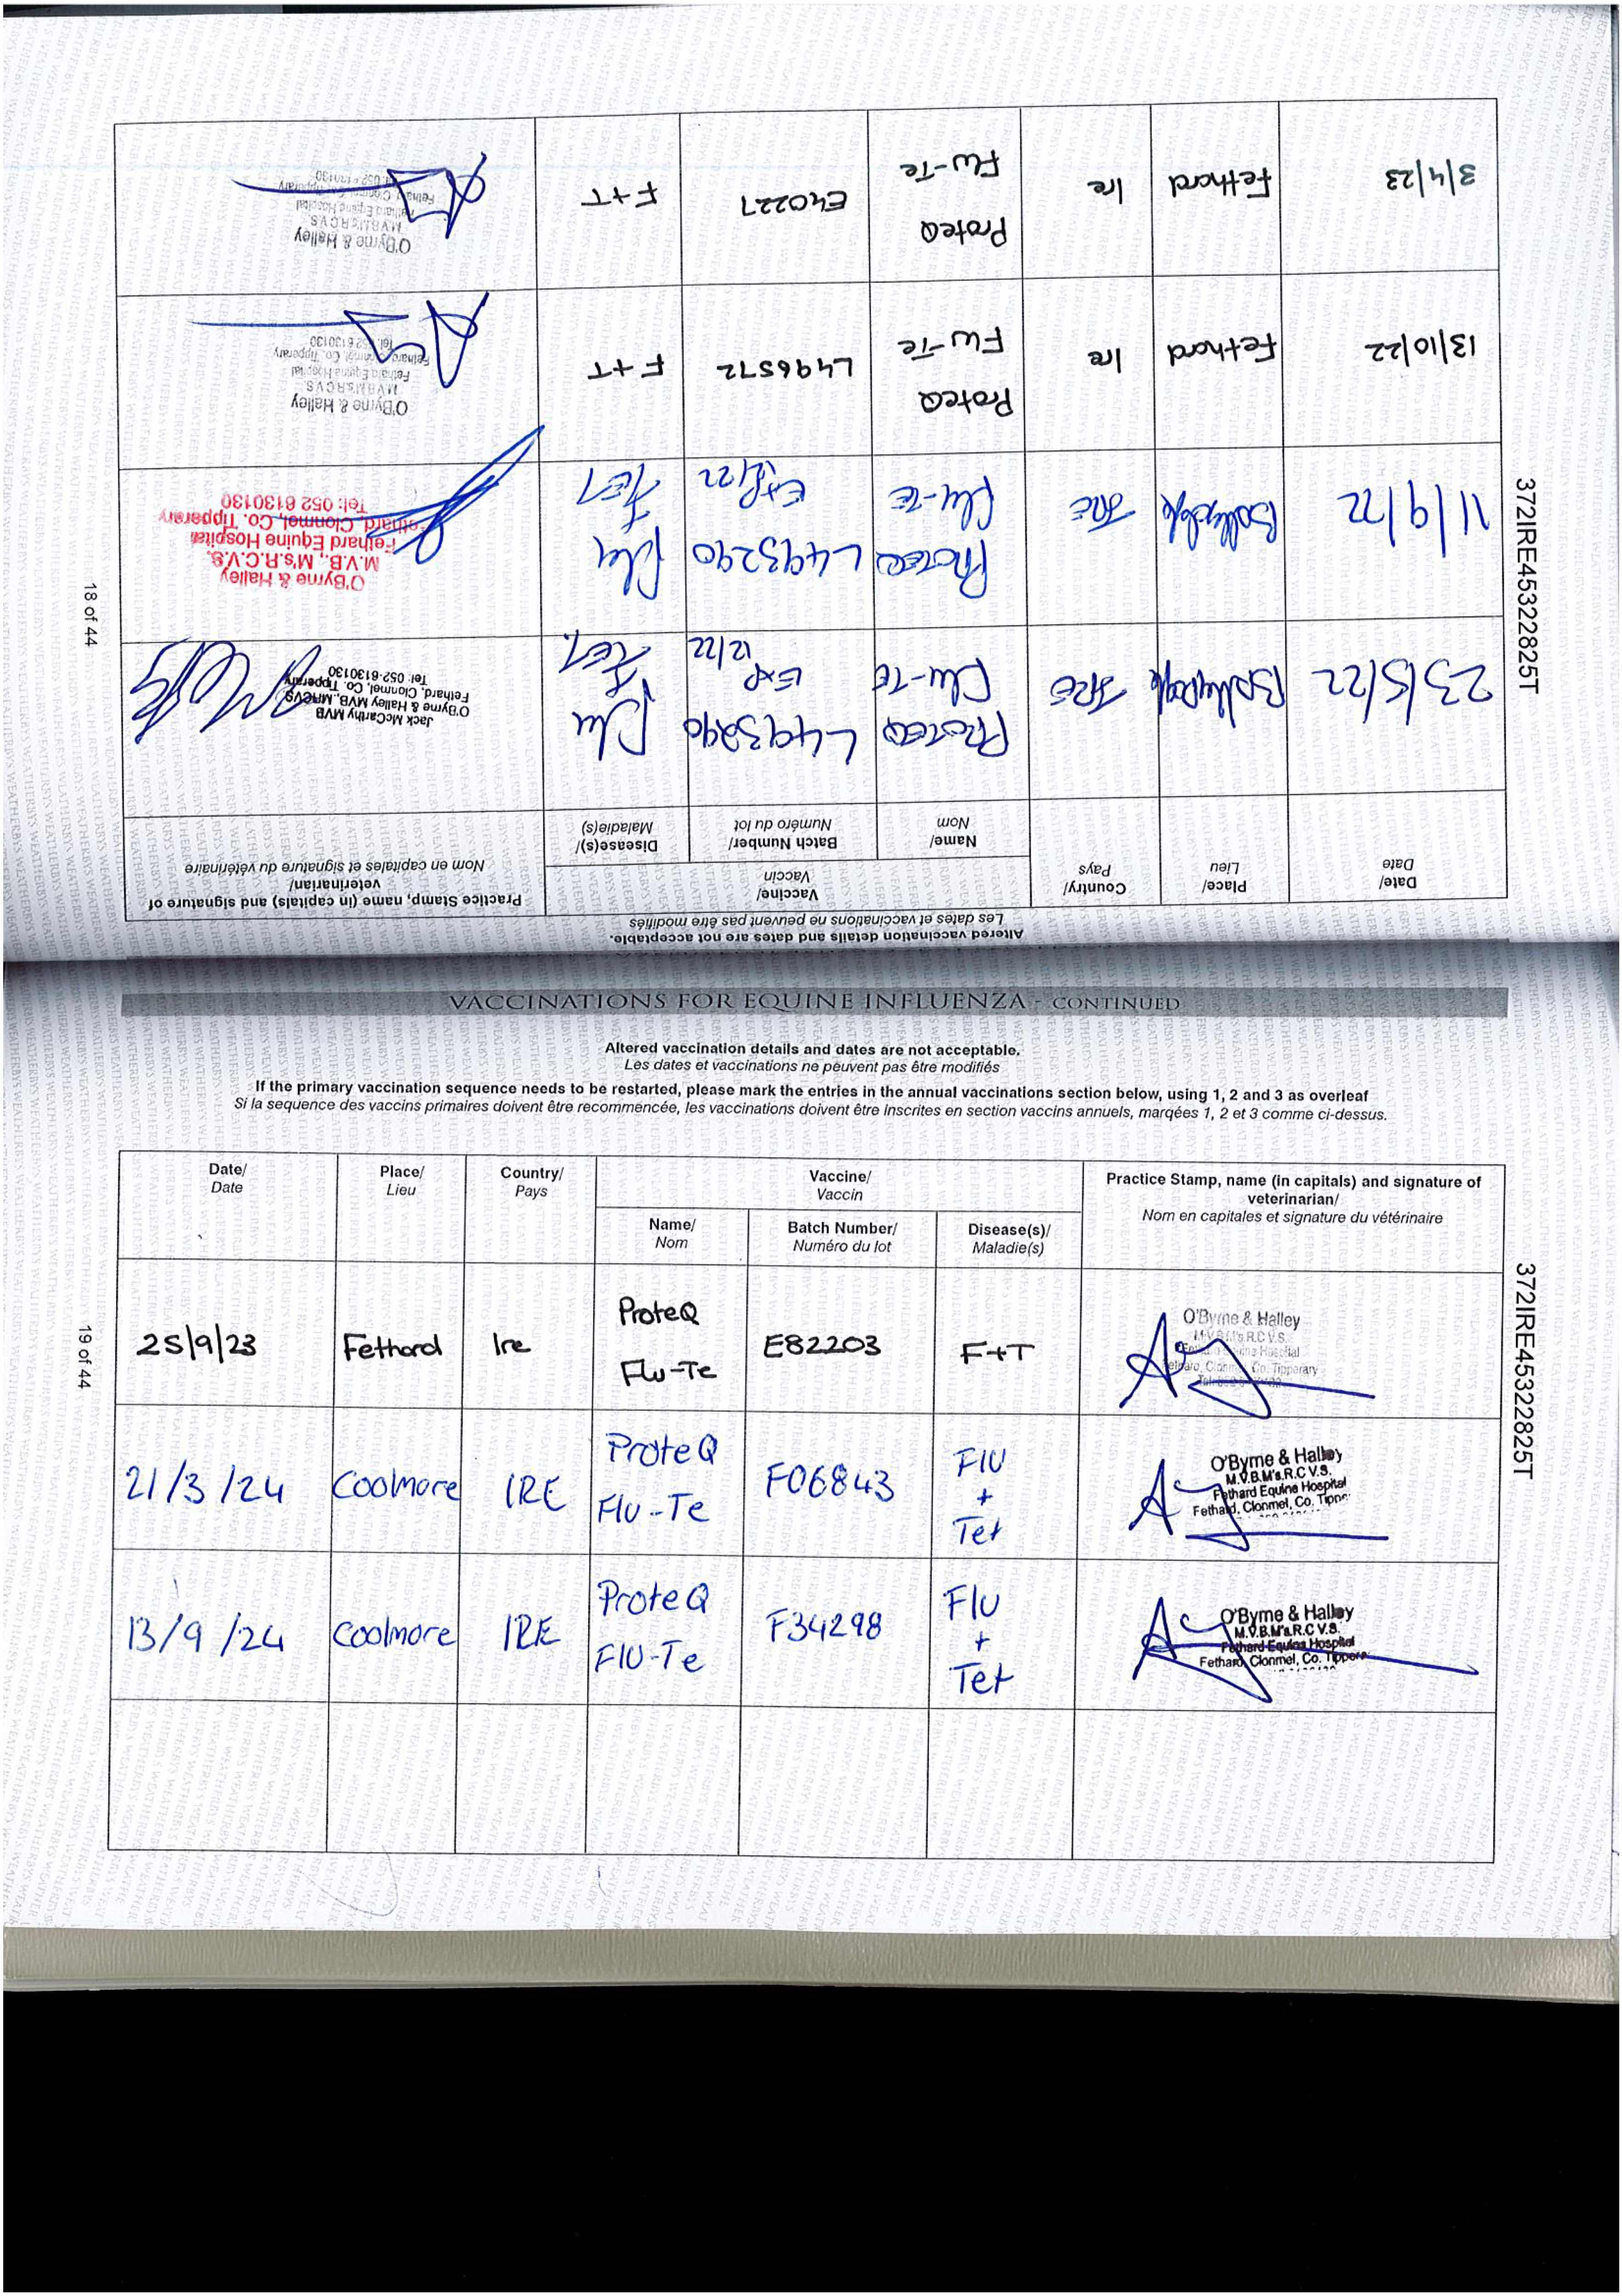 Altered vaccination details and dates are not acceptable.
Les dates et vaccinations ne peuvent pas être modifiés
Date/
Date
Place/
Lieu
Country/
Pays
Vaccine/
Vaccin
Name/
Nom
Batch Number/
Numéro du lot
Disease(s)/
Maladie(s)
Practice Stamp, name (in capitals) and signature of
veterinarian/
Nom en capitales et signature du vétérinaire
23/5/22
IRE
ProteQ
Flu-Te
L493290
Exp
12/22
Flu
+
TET.
Jack McCarthy MVB
O'Byrne & Halley MVB, MRCVS
Fethard, Clonmel, Co. Tipperary
Tel: 052-6130130
11/9/22
IRE
ProteQ
Flu-Te
L493290
Exp
12/22
Flu
+
TET
O'Byrne & Halley
M.V.B., M's.R.C.V.S.
Fethard Equine Hospital
Fethard, Clonmel, Co. Tipperary
Tel: 052 6130130
13/10/22
Fethard
Ire
ProteQ
Flu-Te
L496572
F+T
O'Byrne & Halley
M.V.B.M's R.C.V.S.
Fethard Equine Hospital
Fethard, Clonmel, Co. Tipperary
Tel: 052 6130130
3/4/23
Fethard
Ire
ProteQ
Flu-Te
E40227
F+T
O'Byrne & Halley
M.V.B.M's R.C.V.S.
Fethard Equine Hospital
372IRE45322825T
18 of 44
VACCINATIONS FOR EQUINE INFLUENZA - CONTINUED
Altered vaccination details and dates are not acceptable.
Les dates et vaccinations ne peuvent pas être modifiés
If the primary vaccination sequence needs to be restarted, please mark the entries in the annual vaccinations section below, using 1, 2 and 3 as overleaf
Si la sequence des vaccins primaires doivent être recommencée, les vaccinations doivent être inscrites en section vaccins annuels, marqées 1, 2 et 3 comme ci-dessus.
Date/
Date
Place/
Lieu
Country/
Pays
Vaccine/
Vaccin
Name/
Nom
Batch Number/
Numéro du lot
Disease(s)/
Maladie(s)
Practice Stamp, name (in capitals) and signature of
veterinarian/
Nom en capitales et signature du vétérinaire
25/9/23
Fethard
Ire
ProteQ
Flu-Te
E82203
F+T
O'Byrne & Halley
M.V.B.M's R.C.V.S.
21/3/24
Coolmore
IRE
ProteQ
Flu-Te
F06843
Flu
+
Tet
O'Byrne & Halley
M.V.B.M's.R.C V.S.
Fethard Equine Hospital
Fethard, Clonmel, Co.
13/9/24
Coolmore
IRE
ProteQ
Flu-Te
F34298
Flu
+
Tet
O'Byrne & Halley
M.V.B.M's.R.C V.S.
Fethard Equine Hospital
Fethard, Clonmel, Co.
372IRE45322825T
19 of 44